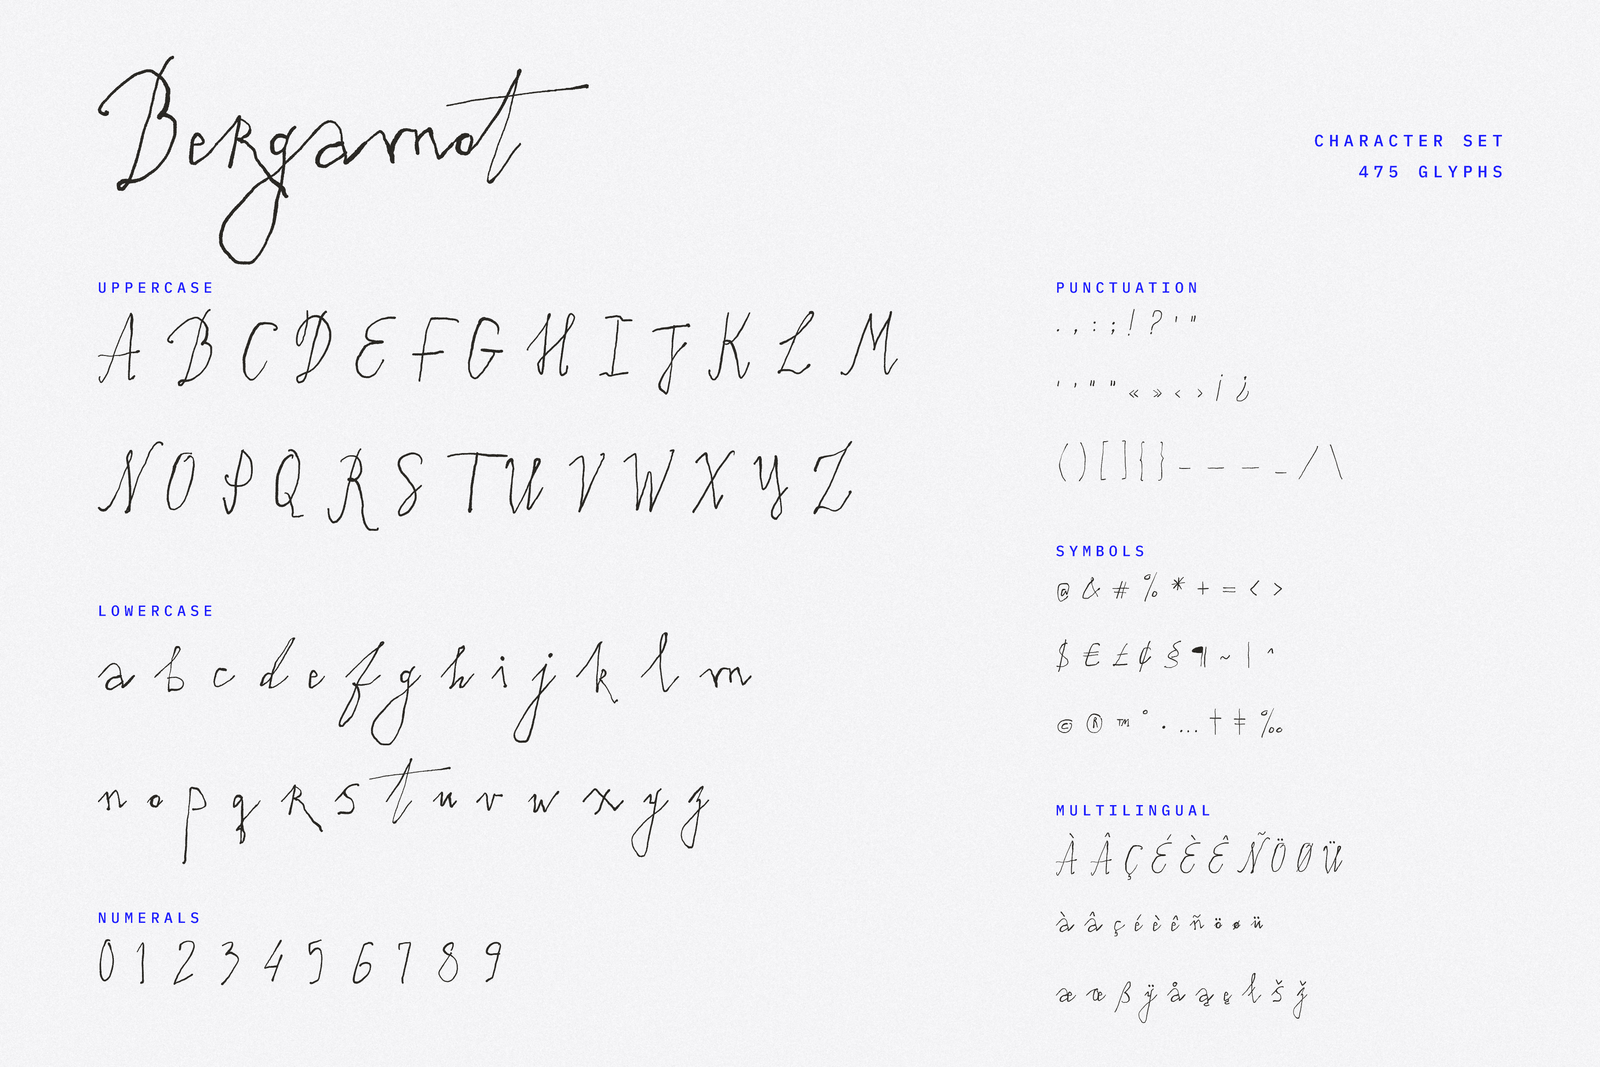 Bergamot
CHARACTER SET
475 GLYPHS
UPPERCASE
A B C D E F G H I J K L M
N O P Q R S T U V W X Y Z
LOWERCASE
a b c d e f g h i j k l m
n o p q r s t u v w x y z
NUMERALS
0 1 2 3 4 5 6 7 8 9
PUNCTUATION
. , : ; ! ? ' "
‘ ’ “ ” « » ‹ › ¡ ¿
( ) [ ] { } - – — _ / \
SYMBOLS
@ & # % * + = < >
$ € £ ¢ § ¶ ~ | ^
© ® ™ ° · … † ‡ ‰
MULTILINGUAL
À Â Ç É È Ê Ñ Ö Ø Ü
à â ç é è ê ñ ö ø ü
æ œ ß ÿ å ą ę ł š ž